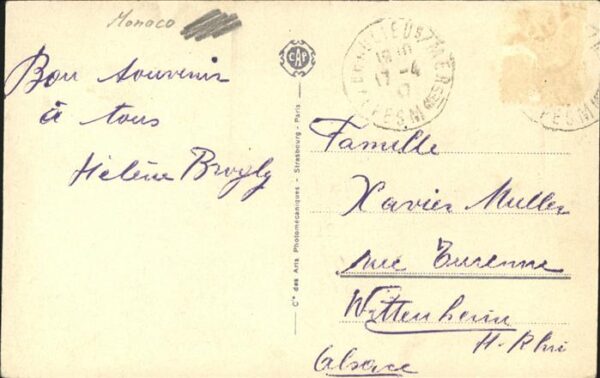 Monaco
Bon souvenir
à tous
Hélène Brogly
CAP
Cie des Arts Photomécaniques - Strasbourg - Paris
BEAULIEU S/ MER
18 10
17 -4
ALPES Mmes
Famille
Xavier Muller
rue Turenne
Wittenheim
H. Rhin
Alsace